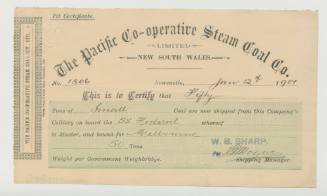 Pit Certificate.
The Pacific Co-operative Steam Coal Co.
LIMITED
NEW SOUTH WALES.
No. 1806 Newcastle, Jan 12th 1901
This is to Certify that Fifty
Tons of Small Coal are now shipped from this Company's
Colliery on board the SS Federal whereof
is Master, and bound for Melbourne
50 Tons
W. B. SHARP.
Weight per Government Weighbridge. Shipping Manager.
THE PACIFIC CO-OPERATIVE STEAM COAL CO. LTD.